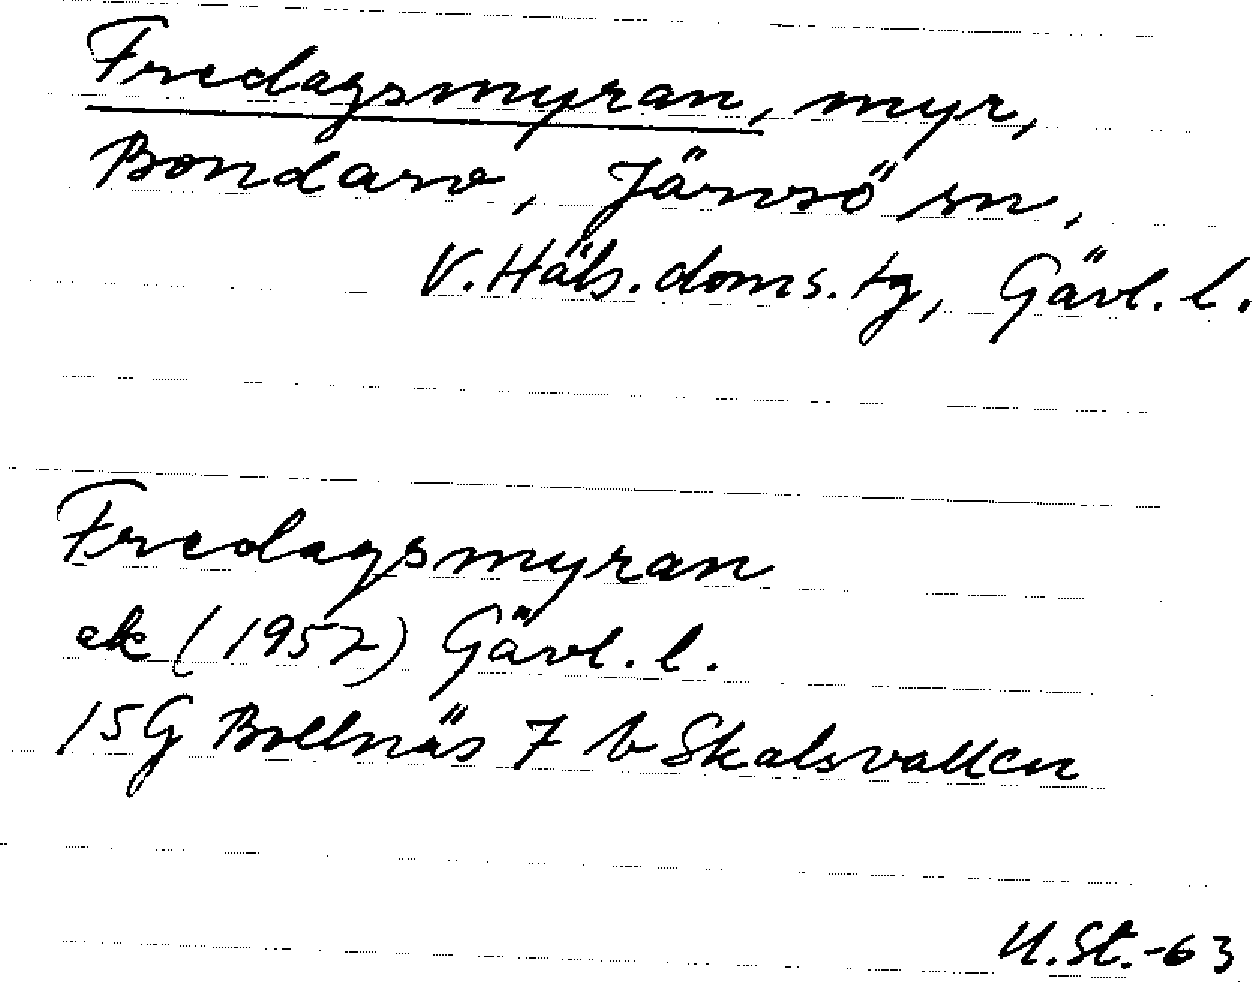 Fredagsmyran, myr,
Bondarv, Järvsö sn,
V. Häls. doms. tg, Gävl. l.
Fredagsmyran
ek (1957) Gävl. l.
15G Bollnäs 7 b Skalsvallen
U.St.-63